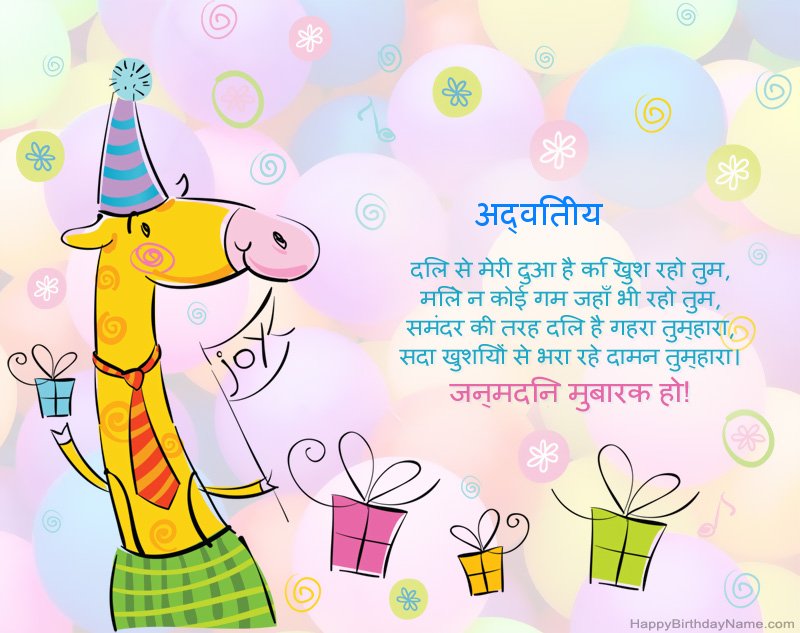 अद्वतिीय
दलि से मेरी दुआ है कि खुश रहो तुम,
मलिे न कोई गम जहाँ भी रहो तुम,
समंदर की तरह दलि है गहरा तुम्हारा,
सदा खुशयिों से भरा रहे दामन तुम्हारा।
जन्मदनि मुबारक हो!
joy
HappyBirthdayName.com